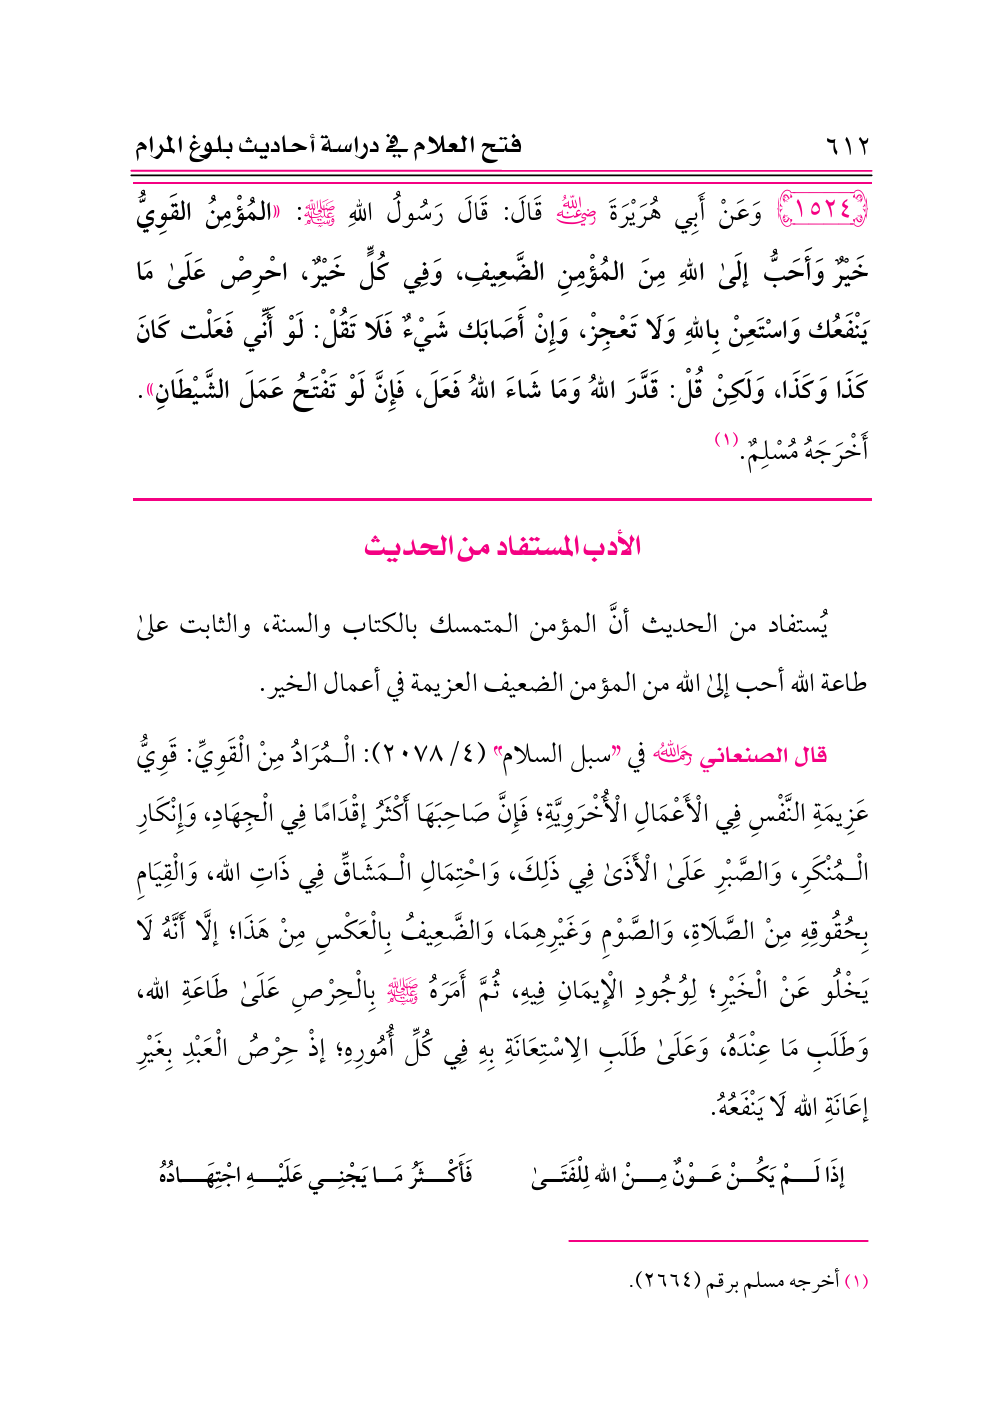 ٦١٢ فتح العلام في دراسة أحاديث بلوغ المرام
١٥٢٤ وَعَنْ أَبِي هُرَيْرَةَ رضي الله عنه قَالَ: قَالَ رَسُولُ اللهِ ﷺ: «المُؤْمِنُ القَوِيُّ
خَيْرٌ وَأَحَبُّ إلَىٰ اللهِ مِنَ المُؤْمِنِ الضَّعِيفِ، وَفِي كُلٍّ خَيْرٌ، احْرِصْ عَلَىٰ مَا
يَنْفَعُك وَاسْتَعِنْ بِاللهِ وَلَا تَعْجِزْ، وَإِنْ أَصَابَك شَيْءٌ فَلَا تَقُلْ: لَوْ أَنِّي فَعَلْت كَانَ
كَذَا وَكَذَا، وَلَكِنْ قُلْ: قَدَّرَ اللهُ وَمَا شَاءَ اللهُ فَعَلَ، فَإِنَّ لَوْ تَفْتَحُ عَمَلَ الشَّيْطَانِ».
أَخْرَجَهُ مُسْلِمٌ.(١)
الأدب المستفاد من الحديث
يُستفاد من الحديث أنَّ المؤمن المتمسك بالكتاب والسنة، والثابت علىٰ
طاعة الله أحب إلىٰ الله من المؤمن الضعيف العزيمة في أعمال الخير.
قال الصنعاني رحمه الله في "سبل السلام" (٤/ ٢٠٧٨): الْـمُرَادُ مِنْ الْقَوِيِّ: قَوِيُّ
عَزِيمَةِ النَّفْسِ فِي الْأَعْمَالِ الْأُخْرَوِيَّةِ؛ فَإِنَّ صَاحِبَهَا أَكْثَرُ إقْدَامًا فِي الْجِهَادِ، وَإِنْكَارِ
الْـمُنْكَرِ، وَالصَّبْرِ عَلَىٰ الْأَذَىٰ فِي ذَلِكَ، وَاحْتِمَالِ الْـمَشَاقِّ فِي ذَاتِ الله، وَالْقِيَامِ
بِحُقُوقِهِ مِنْ الصَّلَاةِ، وَالصَّوْمِ وَغَيْرِهِمَا، وَالضَّعِيفُ بِالْعَكْسِ مِنْ هَذَا؛ إلَّا أَنَّهُ لَا
يَخْلُو عَنْ الْخَيْرِ؛ لِوُجُودِ الْإِيمَانِ فِيهِ، ثُمَّ أَمَرَهُ ﷺ بِالْحِرْصِ عَلَىٰ طَاعَةِ الله،
وَطَلَبِ مَا عِنْدَهُ، وَعَلَىٰ طَلَبِ الِاسْتِعَانَةِ بِهِ فِي كُلِّ أُمُورِهِ؛ إذْ حِرْصُ الْعَبْدِ بِغَيْرِ
إعَانَةِ الله لَا يَنْفَعُهُ.
إذَا لَـــمْ يَكُـــنْ عَـــوْنٌ مِـــنْ الله لِلْفَتَـــىٰ فَأَكْـــثَرُ مَـــا يَجْنِـــي عَلَيْـــهِ اجْتِهَـــادُهُ
(١) أخرجه مسلم برقم (٢٦٦٤).